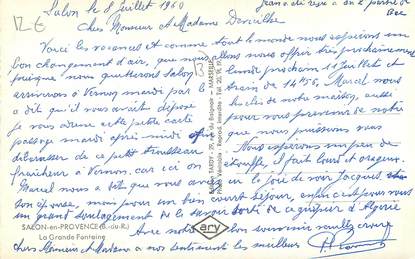 12 €
Salon le 8 juillet 1960
Cher Monsieur et Madame
Voici les vacances et comme tout le monde nous espérons un
bon changement d'air, que nous allons nous offrir très prochainement
puisque nous quitterons Salon lundi prochain 11 juillet et
arriverons à Vernon mardi par le train de 14h56, Marcel nous
a dit qu'il vous avait déposé les clés de notre maison, aussi
je vous adresse cette petite carte pour vous prévenir de notre
passage mardi après-midi afin que nous puissions vous
débarrasser de ce petit trousseau. Nous espérons un peu de
fraîcheur à Vernon, car ici on étouffe, il fait lourd et orageux.
Marcel nous a dit que vous avez eu la joie de voir Jacques
son épouse, mais pour un bien court séjour, enfin c'est pour vous
un grand soulagement de le savoir sorti de ce guêpier d'Algérie
Avec notre bon souvenir veuillez croire
cher Monsieur et Madame à nos sentiments les meilleurs
SALON-en-PROVENCE (B.-du-R.)
La Grande Fontaine
ary